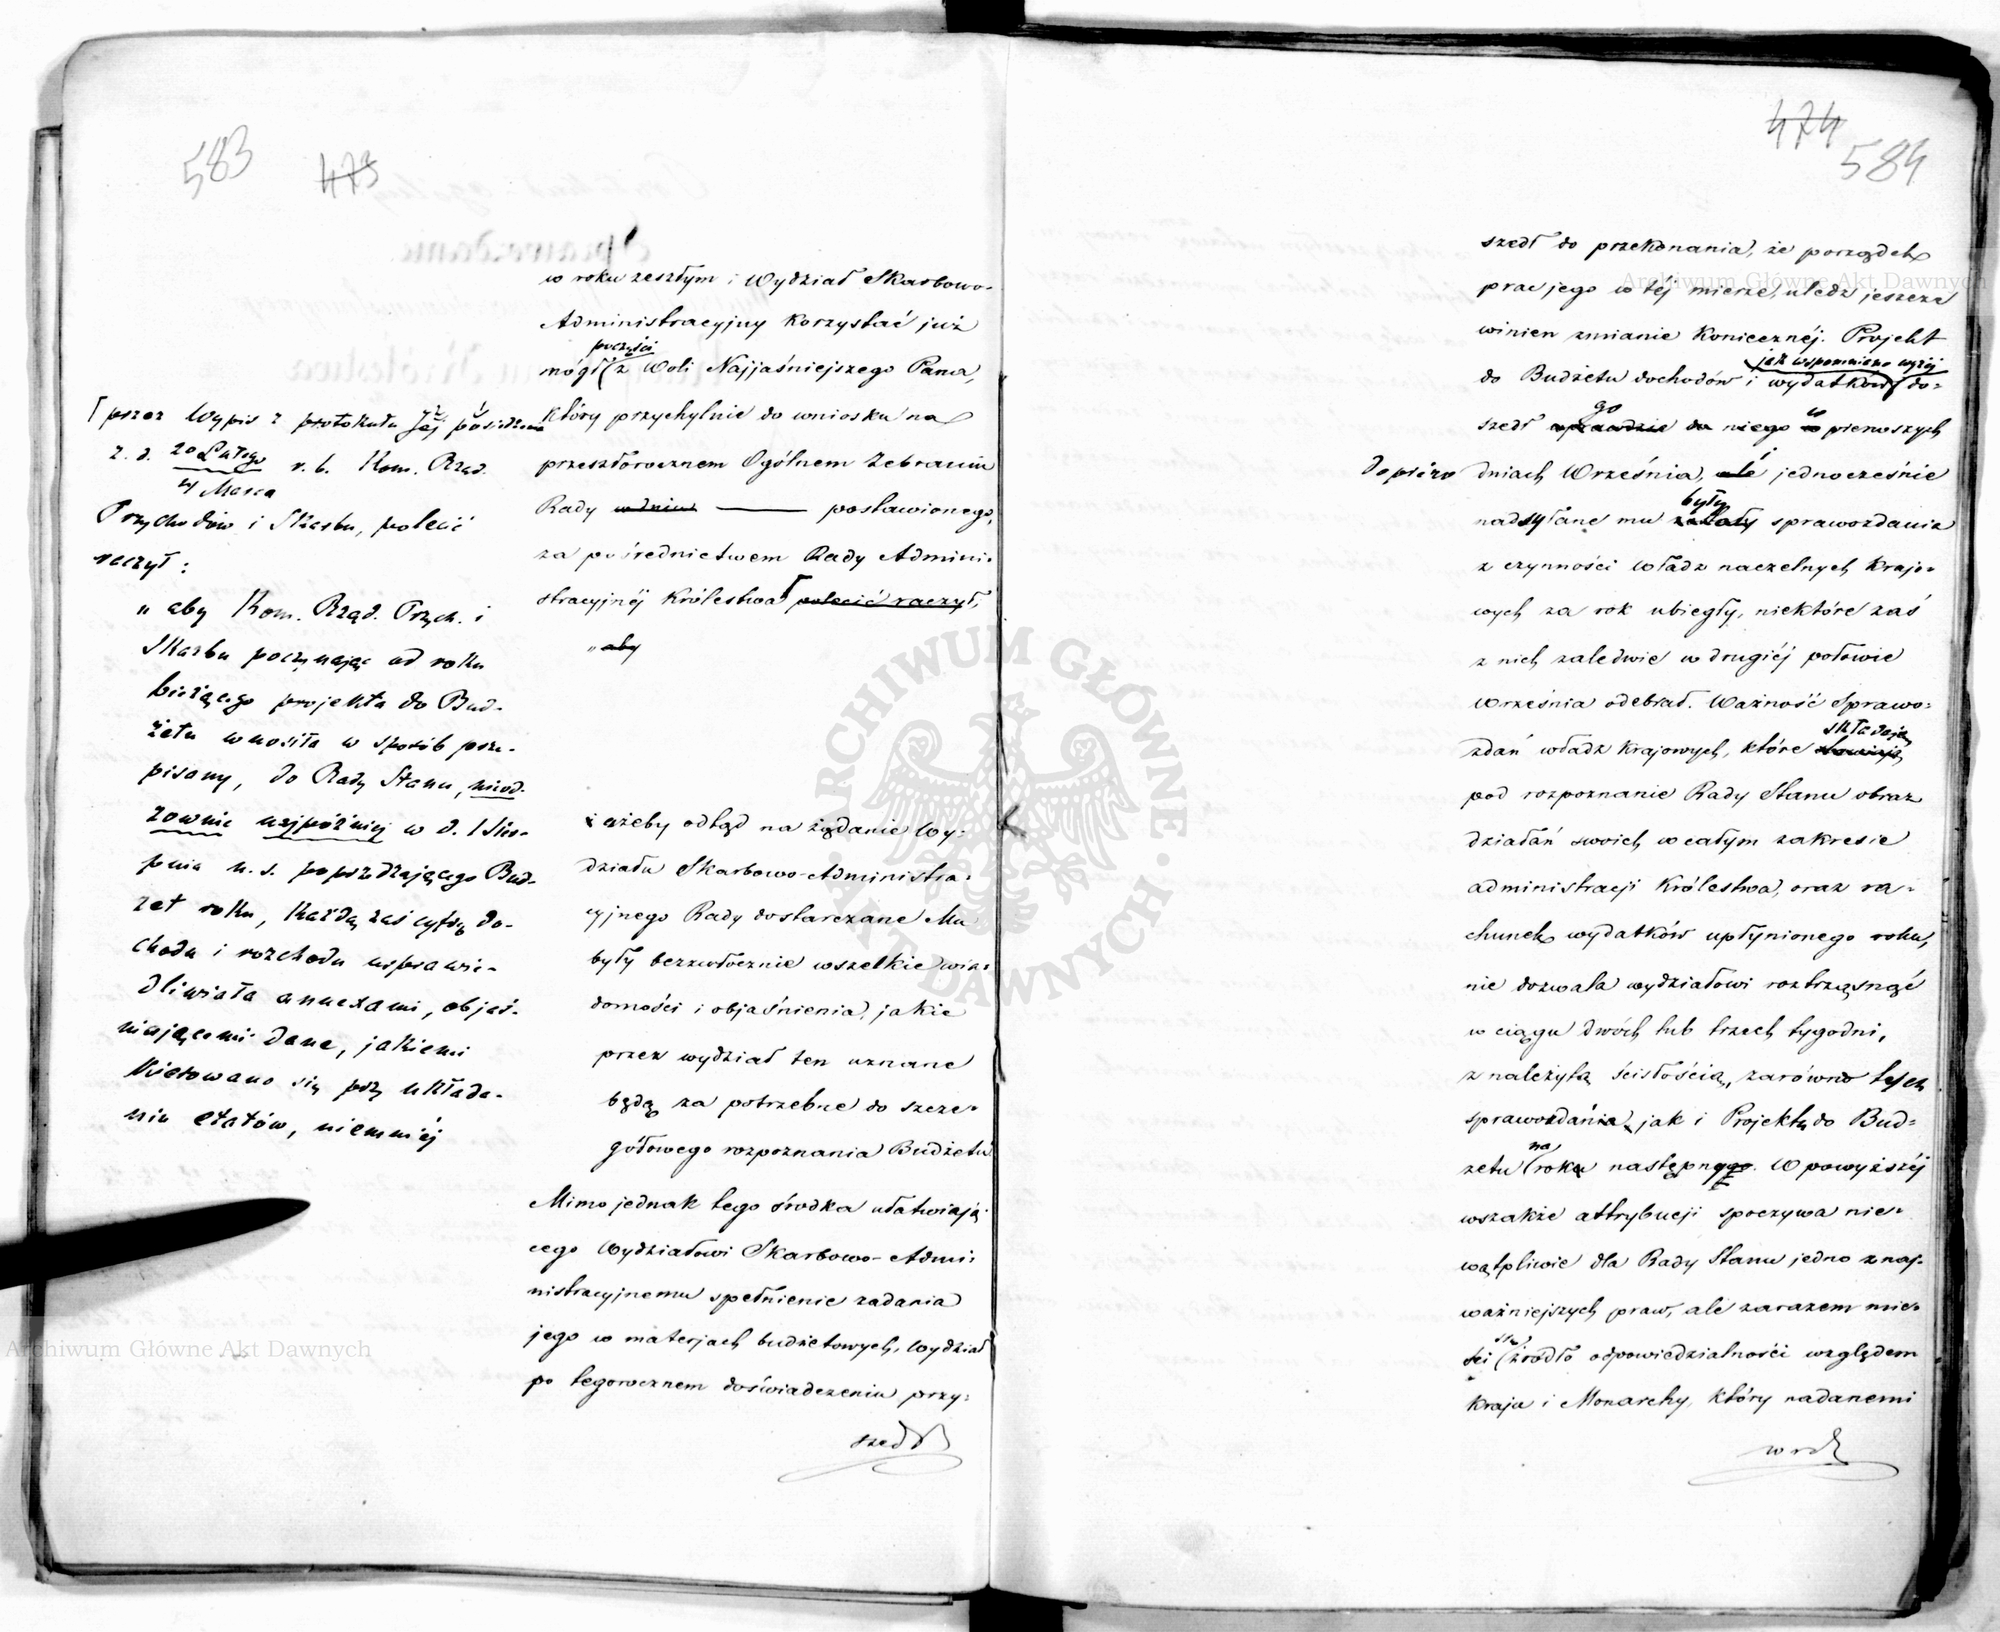 583
473
w roku zeszłym i Wydział Skarbowo-
Administracyjny korzystać już
poczęści
mógł z Woli Najjaśniejszego Pana,
który przychylnie do wniosku na
przeszłorocznem Ogólnem Zebraniu
Rady w dniu postawionego,
za pośrednictwem Rady Admini-
stracyjnéj Królestwa polecić raczył,
„aby
przez Wypis z protokułu Jej posiedzenia
z d. 20 Lutego r. b. Kom. Rząd.
4 Marca
Przychodów i Skarbu, polecić
raczył:
„aby Kom. Rząd. Przych. i
Skarbu poczynając od roku
bieżącego projekta do Bud-
żetu wnosiła w sposób prze-
pisany, do Rady Stanu, nieod-
zownie najpóźniej w d. 1 Sier-
pnia n. s. poprzedzającego Bud-
żet roku, każdą zaś cyfrę do-
chodu i rozchodu usprawie-
dliwiała annexami, objaś-
niającemi dane, jakiemi
kierowano się przy układa-
niu etatów, niemniéj
i ażeby odtąd na żądanie Wy-
działu Skarbowo-Administra-
cyjnego Rady dostarczane Mu
były bezzwłocznie wszelkie wia-
domości i objaśnienia, jakie
przez wydział ten uznane
będą za potrzebne do szcze-
gółowego rozpoznania Budżetu
Mimo jednak tego środka ułatwiają-
cego Wydziałowi Skarbowo-Admi-
nistracyjnemu spełnienie zadania
jego w materjach budżetowych, Wydział
po tegorocznem doświadczeniu przy-
szedł
474
584
szedł do przekonania, że porządek
prac jego w téj mierze, uledz jeszcze
winien zmianie koniecznéj. Projekt
jak wspomniano wyżéj
do Budżetu dochodów i wydatków do-
go w
szedł wprawdzie do niego w pierwszych
dopiéro dniach Września, ale i jednocześnie
były
nadsyłane mu zostały sprawozdania
z czynności władz naczelnych krajo-
wych za rok ubiegły, niektóre zaś
z nich zaledwie w drugiéj połowie
Września odebrał. Ważność Sprawo-
składają
zdań władz krajowych, które
pod rozpoznanie Rady Stanu obraz
działań swoich w całym zakresie
administracji Królestwa, oraz ra-
chunek wydatków upłynionego roku,
nie dozwala wydziałowi roztrząsnąć
w ciągu dwóch lub trzech tygodni,
z należytą ścisłością, zarówno tych
sprawozdania, jak i Projektu do Bud-
na
żetu roku następnego. W powyższéj
wszakże attrybucji spoczywa nie-
wątpliwie dla Rady Stanu jedno z naj-
ważniejszych praw, ale zarazem mie-
się
ści źródło odpowiedzialności względem
Kraju i Monarchy, który nadanemi
Archiwum Główne Akt Dawnych
Archiwum Główne Akt Dawnych
ARCHIWUM GŁÓWNE AKT DAWNYCH